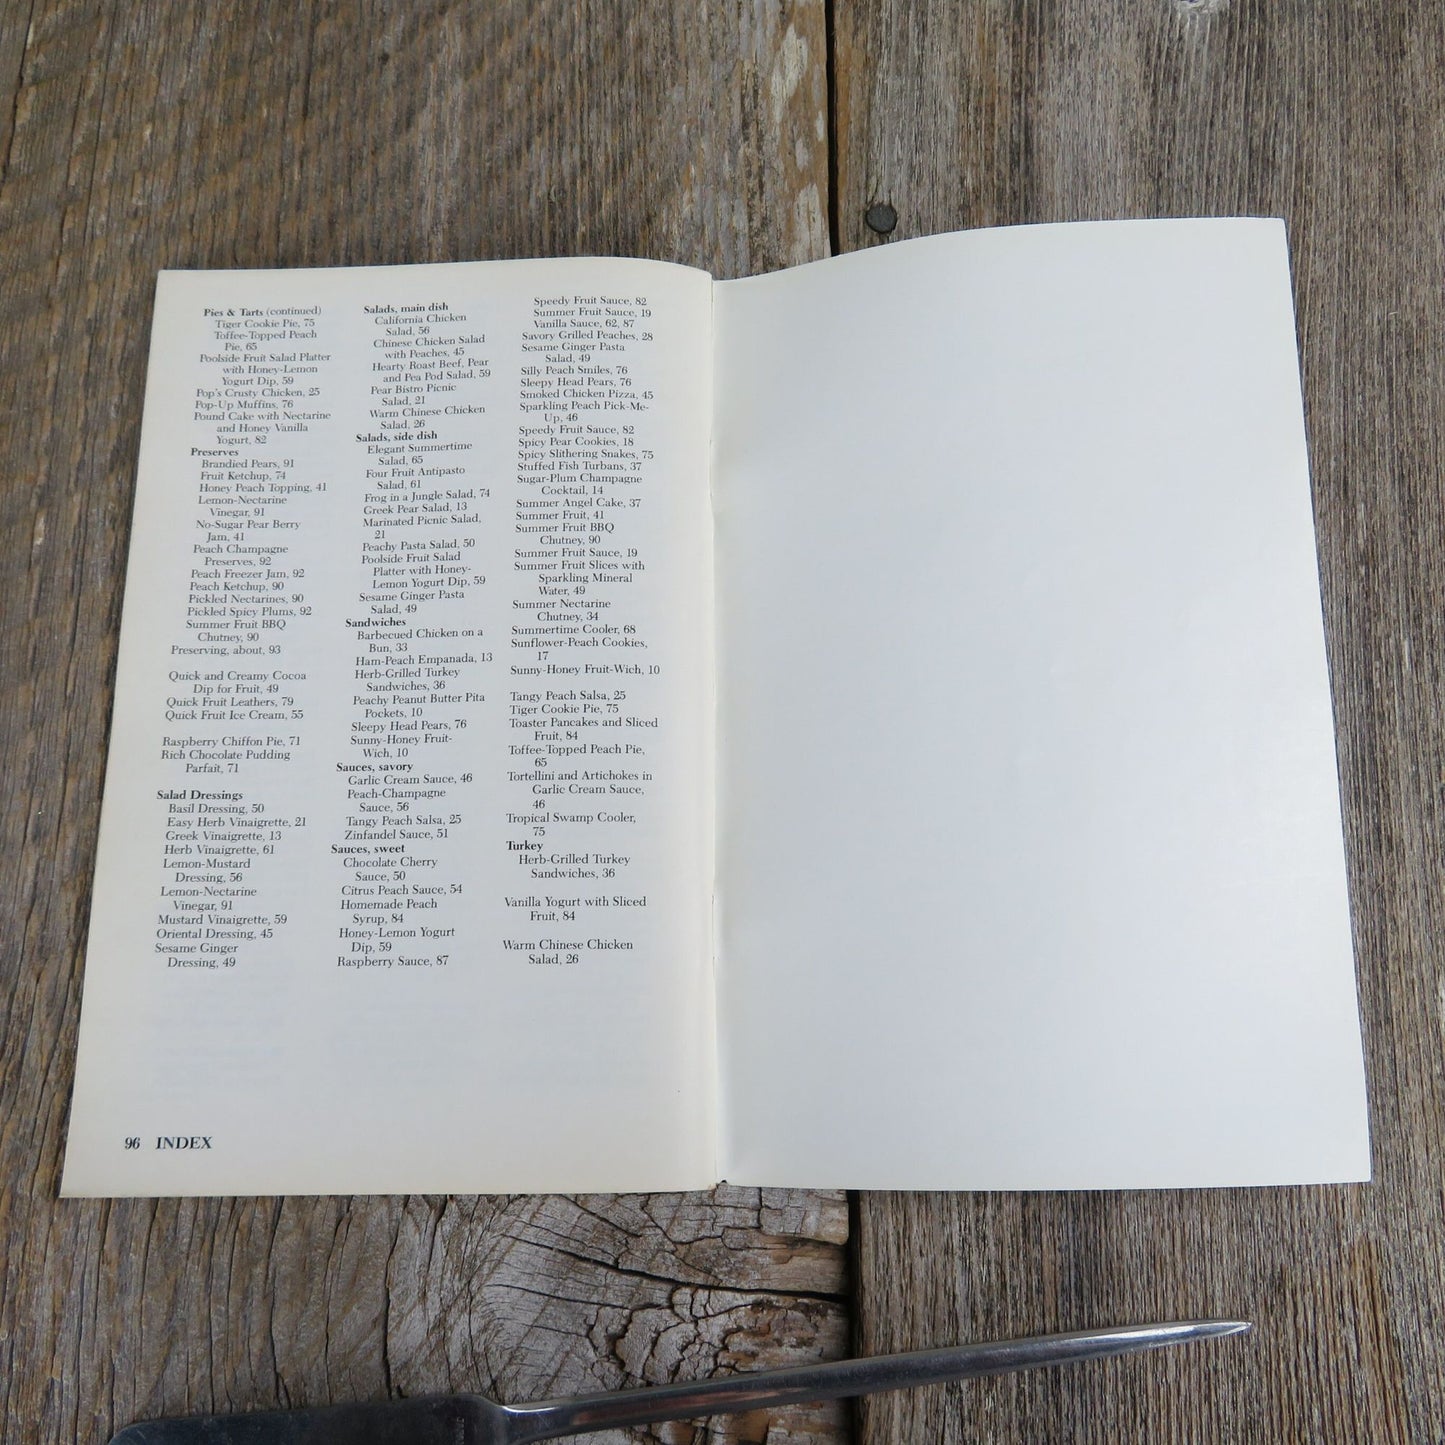 Pies & Tarts (continued)
Tiger Cookie Pie, 75
Toffee-Topped Peach
Pie, 65
Poolside Fruit Salad Platter
with Honey-Lemon
Yogurt Dip, 59
Pop's Crusty Chicken, 25
Pop-Up Muffins, 76
Pound Cake with Nectarine
and Honey Vanilla
Yogurt, 82
Preserves
Brandied Pears, 91
Fruit Ketchup, 74
Honey Peach Topping, 41
Lemon-Nectarine
Vinegar, 91
No-Sugar Pear Berry
Jam, 41
Peach Champagne
Preserves, 92
Peach Freezer Jam, 92
Peach Ketchup, 90
Pickled Nectarines, 90
Pickled Spicy Plums, 92
Summer Fruit BBQ
Chutney, 90
Preserving, about, 93
Quick and Creamy Cocoa
Dip for Fruit, 49
Quick Fruit Leathers, 79
Quick Fruit Ice Cream, 55
Raspberry Chiffon Pie, 71
Rich Chocolate Pudding
Parfait, 71
Salad Dressings
Basil Dressing, 50
Easy Herb Vinaigrette, 21
Greek Vinaigrette, 13
Herb Vinaigrette, 61
Lemon-Mustard
Dressing, 56
Lemon-Nectarine
Vinegar, 91
Mustard Vinaigrette, 59
Oriental Dressing, 45
Sesame Ginger
Dressing, 49
Salads, main dish
California Chicken
Salad, 56
Chinese Chicken Salad
with Peaches, 45
Hearty Roast Beef, Pear
and Pea Pod Salad, 59
Pear Bistro Picnic
Salad, 21
Warm Chinese Chicken
Salad, 26
Salads, side dish
Elegant Summertime
Salad, 65
Four Fruit Antipasto
Salad, 61
Frog in a Jungle Salad, 74
Greek Pear Salad, 13
Marinated Picnic Salad,
21
Peachy Pasta Salad, 50
Poolside Fruit Salad
Platter with Honey-
Lemon Yogurt Dip, 59
Sesame Ginger Pasta
Salad, 49
Sandwiches
Barbecued Chicken on a
Bun, 33
Ham-Peach Empanada, 13
Herb-Grilled Turkey
Sandwiches, 36
Peachy Peanut Butter Pita
Pockets, 10
Sleepy Head Pears, 76
Sunny-Honey Fruit-
Wich, 10
Sauces, savory
Garlic Cream Sauce, 46
Peach-Champagne
Sauce, 56
Tangy Peach Salsa, 25
Zinfandel Sauce, 51
Sauces, sweet
Chocolate Cherry
Sauce, 50
Citrus Peach Sauce, 54
Homemade Peach
Syrup, 84
Honey-Lemon Yogurt
Dip, 59
Raspberry Sauce, 87
Speedy Fruit Sauce, 82
Summer Fruit Sauce, 19
Vanilla Sauce, 62, 87
Savory Grilled Peaches, 28
Sesame Ginger Pasta
Salad, 49
Silly Peach Smiles, 76
Sleepy Head Pears, 76
Smoked Chicken Pizza, 45
Sparkling Peach Pick-Me-
Up, 46
Speedy Fruit Sauce, 82
Spicy Pear Cookies, 18
Spicy Slithering Snakes, 75
Stuffed Fish Turbans, 37
Sugar-Plum Champagne
Cocktail, 14
Summer Angel Cake, 37
Summer Fruit, 41
Summer Fruit BBQ
Chutney, 90
Summer Fruit Sauce, 19
Summer Fruit Slices with
Sparkling Mineral
Water, 49
Summer Nectarine
Chutney, 34
Summertime Cooler, 68
Sunflower-Peach Cookies,
17
Sunny-Honey Fruit-Wich, 10
Tangy Peach Salsa, 25
Tiger Cookie Pie, 75
Toaster Pancakes and Sliced
Fruit, 84
Toffee-Topped Peach Pie,
65
Tortellini and Artichokes in
Garlic Cream Sauce,
46
Tropical Swamp Cooler,
75
Turkey
Herb-Grilled Turkey
Sandwiches, 36
Vanilla Yogurt with Sliced
Fruit, 84
Warm Chinese Chicken
Salad, 26
96 INDEX